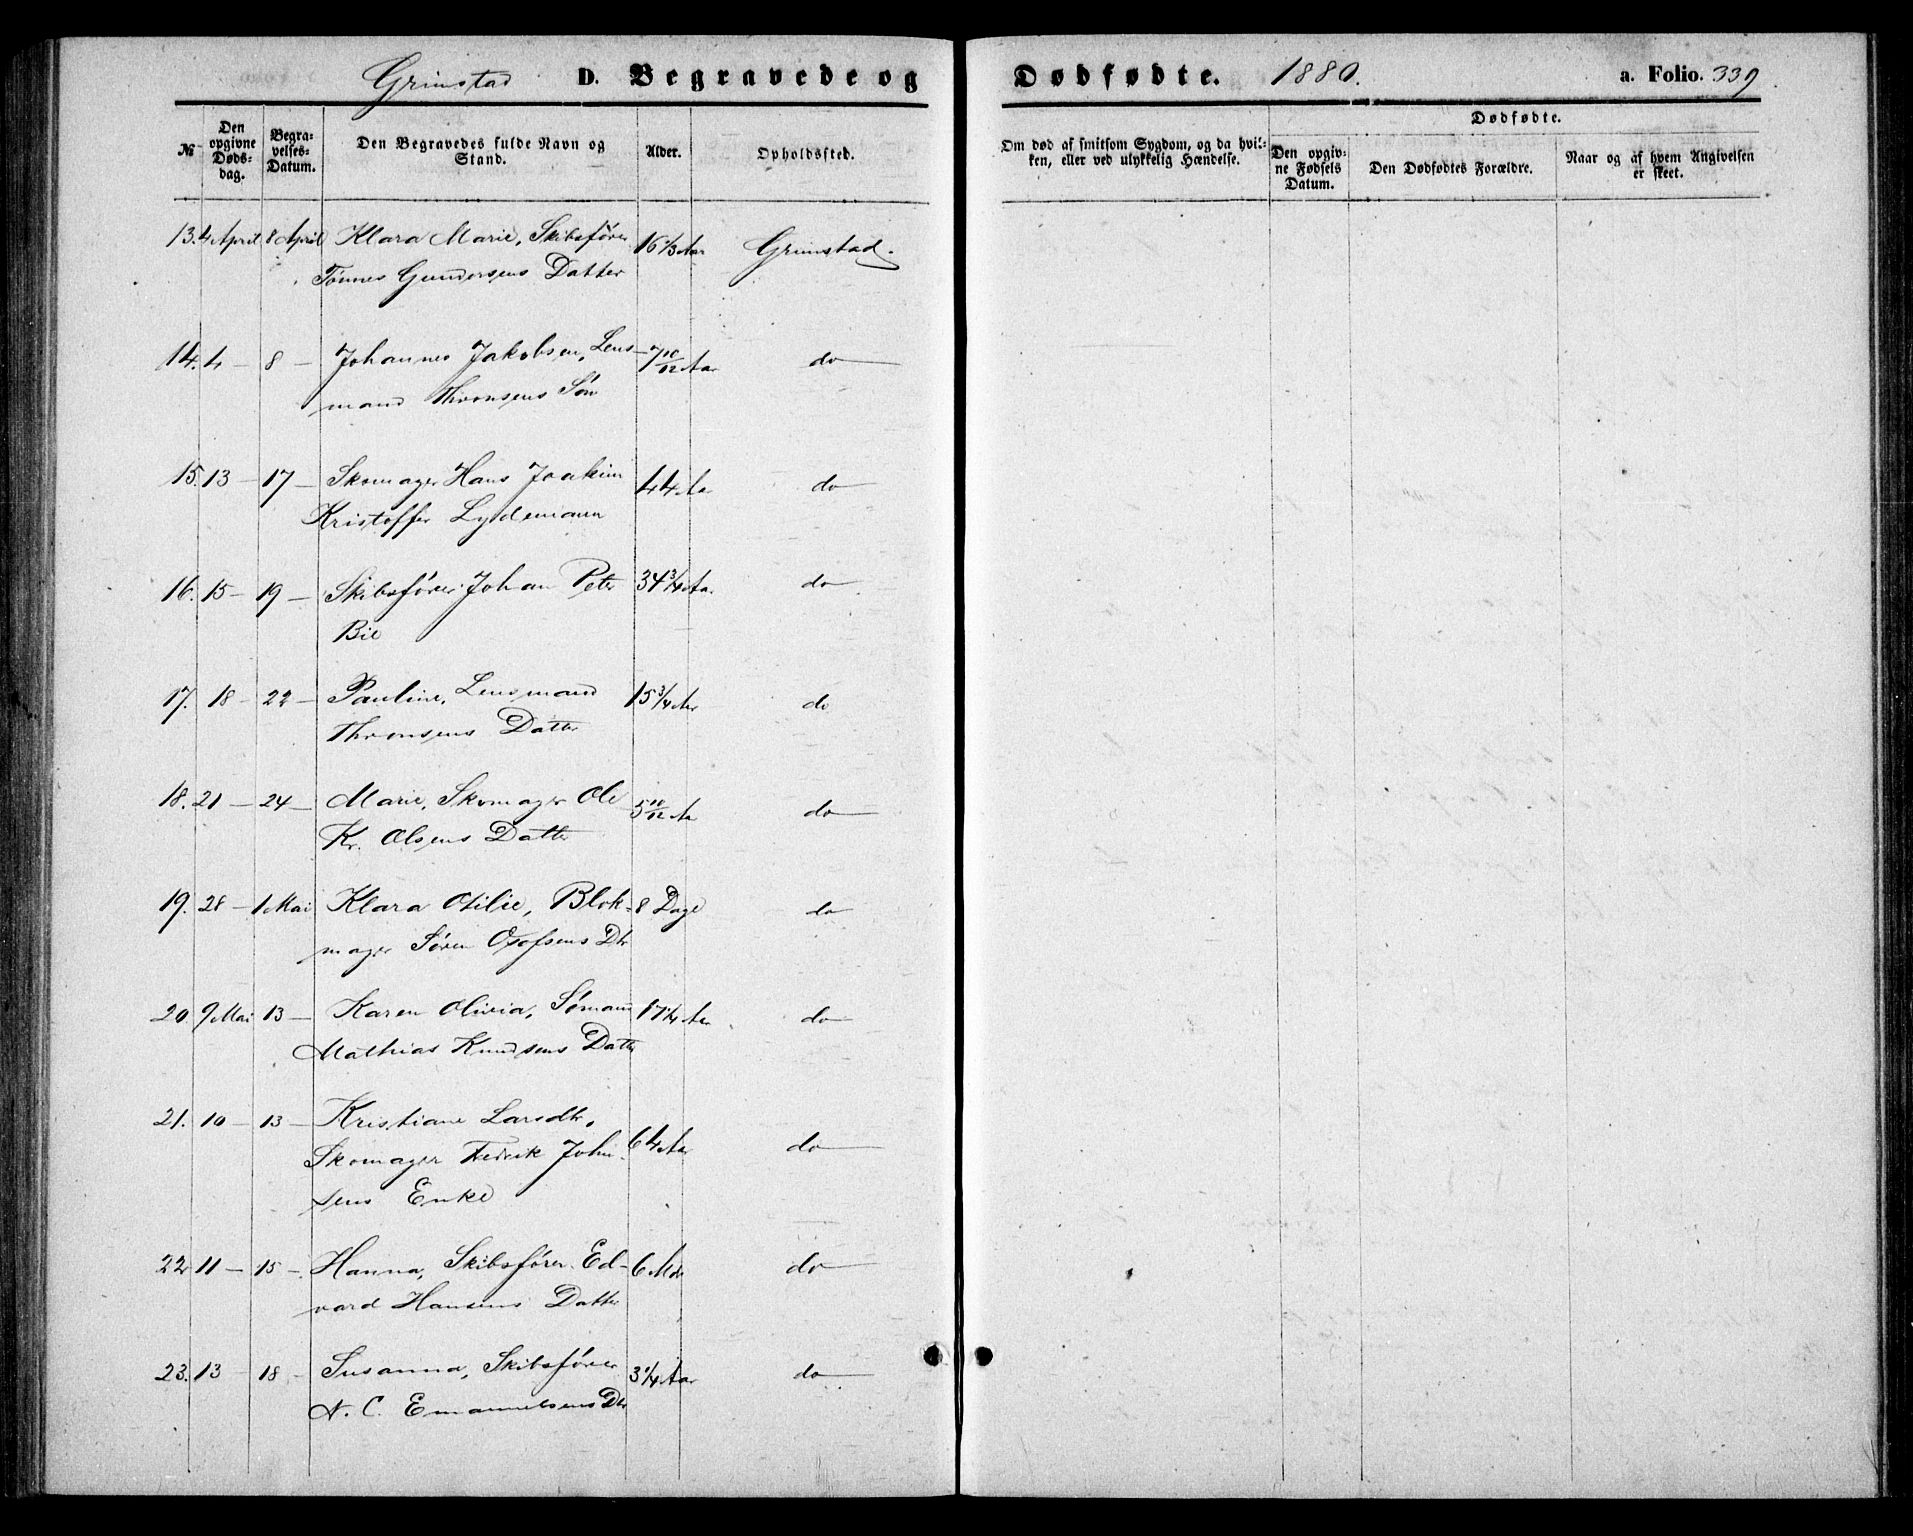 Grimstad D. Begravede og Dødfødte. 1880. a. Folio. 339
№ Den opgivne Døds-dag. Begra-velses-Datum. Den Begravedes fulde Navn og Stand. Alder. Opholdssted. Om død af smitsom Sygdom, og da hvil-ken, eller ved ulykkelig Hændelse. Dødfødte. Den opgiv-ne Fødsels Datum. Den Dødfødtes Forældre. Naar og af hvem Angivelsen er skeet.
13. 4 April 8 April Klara Marie, Skibsfører 16 1/3 Aar Grimstad.
Tønnes Gundersens Datter
14. 4 – 8 – Johannes Jakobsen, Lens- 7 10/12 Aar do
mand Thronsens Søn
15. 13 – 17 – Skomager Hans Joakim 44 Aar do
Kristoffer Lydemann
16. 15 – 19 – Skibsfører Johan Peter 34 3/4 Aar do
Bie
17. 18 – 22 – Pauline, Lensmand 15 3/4 Aar do
Thronsens Datter
18. 21 – 24 – Marie, Skomager Ole 5 10/12 Aa do
Kr. Olsens Datter
19. 28 – 1 Mai Klara Otilie, Blok- 8 Dage do
mager Søren Dtr
20 9 Mai 13 – Karen Olivia, Sømann 17 1/4 Aar do
Mathias Knudsens Datter
21. 10 – 13 – Kristiane Larsdtr, 64 Aar do
Skomager Fredrik John-
sens Enke
22 11 – 15 – Hanna, Skibsfører Ed- 6 Mdr do
vard Hansens Datter
23. 13 18 – Susanna, Skibsfører 3 1/4 Aar do
N. C. Emanuelsens Dtr